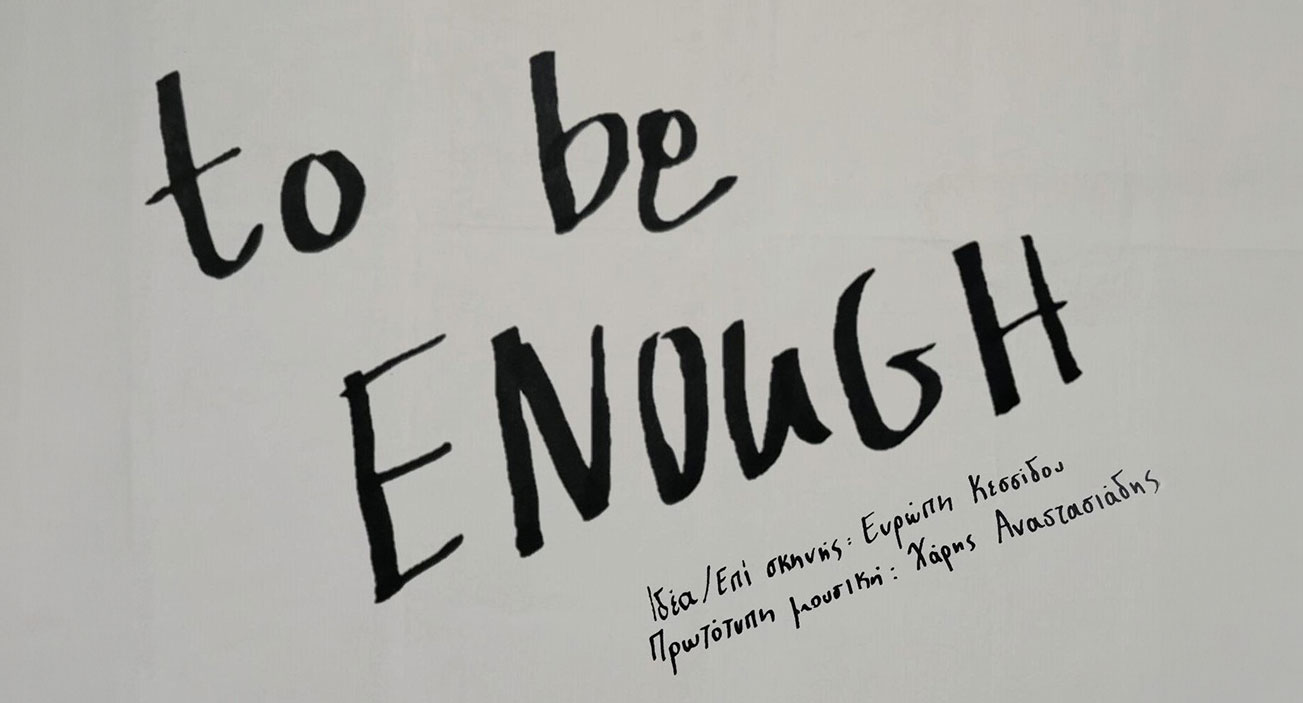 to be
ENOuGH
Ιδέα/Επί σκηνής: Ευρώπη Κεσσίδου
Πρωτότυπη μουσική: Χάρης Αναστασιάδης